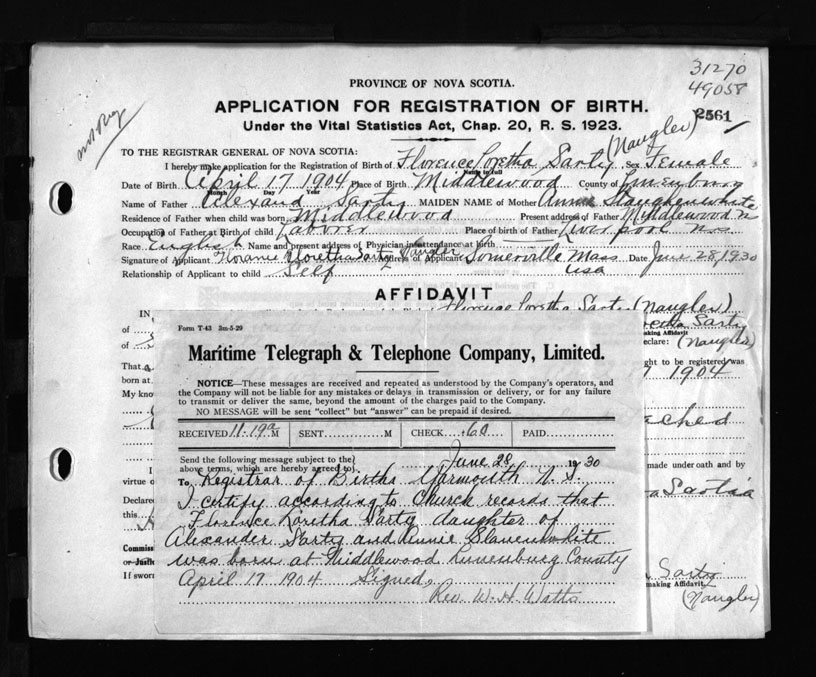 31270
49058
PROVINCE OF NOVA SCOTIA.
APPLICATION FOR REGISTRATION OF BIRTH.
2561
Under the Vital Statistics Act, Chap. 20, R. S. 1923.
not Reg
(Naugler)
TO THE REGISTRAR GENERAL OF NOVA SCOTIA:
I hereby make application for the Registration of Birth of Florence Loretha Sarty Sex Female
Name in full
Date of Birth April 17 1904 Place of Birth Middlewood County of Lunenburg
Month Day Year
Name of Father Alexand Sarty MAIDEN NAME of Mother Annie Slaughenwhite
Residence of Father when child was born Middlewood Present address of Father Middlewood
Occupation of Father at Birth of child Laborer Place of birth of Father Liverpool N.S.
Race English Name and present address of Physician in attendance at birth
Signature of Applicant Florence Loretha Sarty Naugler Address of applicant Somerville Mass Date June 28, 1930
Relationship of Applicant to child Self USA
AFFIDAVIT
IN Florence Loretha Sarty (Naugler)
of retha Sarty
making Affidavit
of eclare: (Naugler)
That ght to be registered was
born at 1904
My kno
ched
I made under oath and by
virtue o
Declared
this
Commiss
or Justic
If sworn Sarty
making Affidavit
(Naugler)
Form T-43 3m-5-29
Maritime Telegraph & Telephone Company, Limited.
NOTICE—These messages are received and repeated as understood by the Company's operators, and
the Company will not be liable for any mistakes or delays in transmission or delivery, or for any failure
to transmit or deliver the same, beyond the amount of the charges paid to the Company.
NO MESSAGE will be sent "collect" but "answer" can be prepaid if desired.
RECEIVED 11-19a M SENT M CHECK .60 PAID
Send the following message subject to the
above terms, which are hereby agreed to June 28 1930
To Registrar of Births Yarmouth N.S.
I certify according to Church records that
Florence Loretha Sarty daughter of
Alexander Sarty and Annie Slauenwhite
was born at Middlewood Lunenburg County
April 17 1904 Signed,
Rev. W. H. Watts